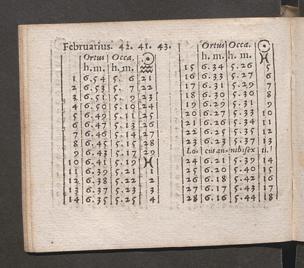 Februarius. 42. 41. 43.
Ortus Occa.
h. m. h. m.
1 6.54 5. 6 21
2 6.53 5. 7 22
3 6.51 5. 9 23
4 6.50 5.10 24
5 6.49 5.11 25
6 6.47 5.13 26
7 6.46 5.14 27
8 6.45 5.15 28
9 6.43 5.17 29
10 6.41 5.19 ♓
11 6.39 5.21 1
12 6.38 5.22 2
13 6.37 5.23 3
14 6.35 5.25 4
Ortus Occa. ☉
h. m. h. m. ♓
15 6.34 5.26 5
16 6.33 5.27 6
17 6.31 5.29 7
18 6.30 5.30 8
19 6.29 5.31 9
20 6.27 5.33 10
21 6.26 5.34 11
22 6.25 5.35 12
23 6.23 5.37 13
Lo cus an- nibisex ti.
24 6.21 5.39 14
25 6.20 5.40 15
26 6.18 5.42 16
27 6.17 5.43 17
28 6.16 5.44 18